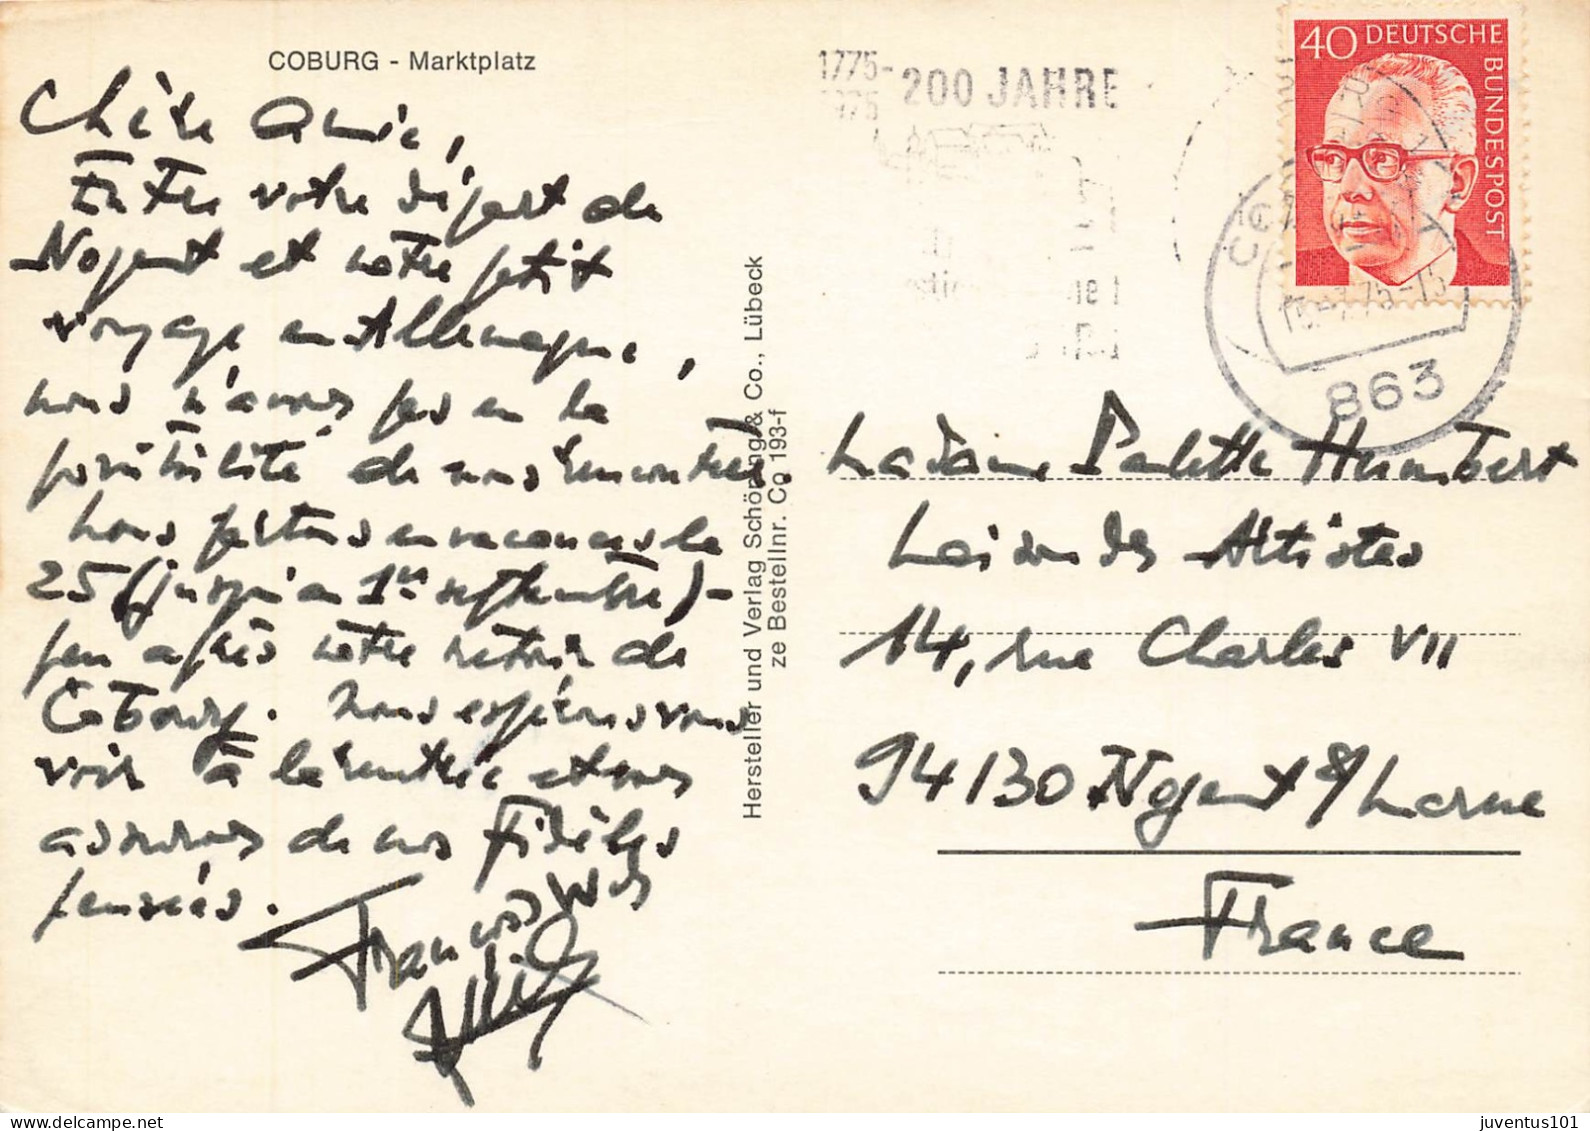 COBURG - Marktplatz
Chère Amie,
Entre votre départ de
Nogent et notre petit
voyage en Allemagne,
nous n'avons pas eu la
possibilité de nous rencontrer.
Nous partons en vacances le
25 (jusqu'au 1er septembre) -
peu après notre retour de
Cobourg. Nous espérons vous
voir à la rentrée et vous
assurons de nos fidèles
pensées.
Hersteller und Verlag Schöning & Co., Lübeck
ze Bestellnr. Co 193-f
1775-
1975
200 JAHRE
40 DEUTSCHE
BUNDESPOST
863
Madame Paulette Humbert
Maison des Artistes
14, rue Charles VII
94130 Nogent s/Marne
France
juventus101